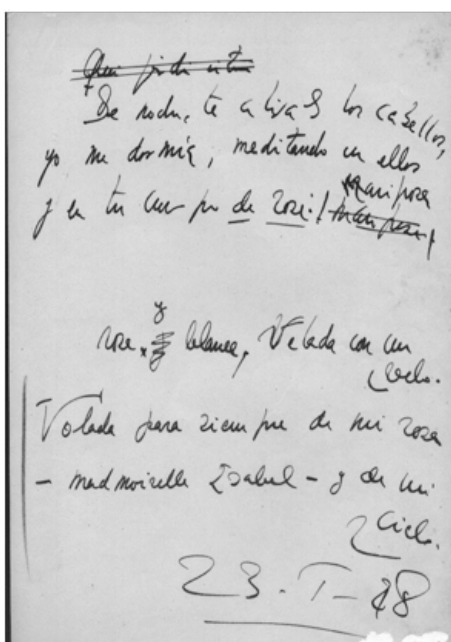 De noche, te los cabellos,
yo me dormía, meditando en ellos
y en tu cuerpo de rosa: mariposa
rosa y blanca, Velada con un
velo.
Volada para siempre de mi rosa
- madmoiselle Isabel - y de mi
cielo.
23-I-48